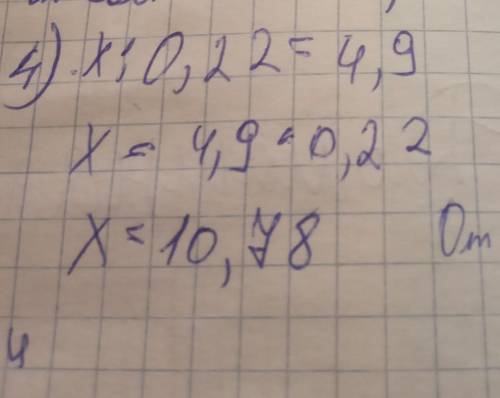 4) x : 0,22 = 4,9
x = 4,9 · 0,22
x = 10,78 От
4